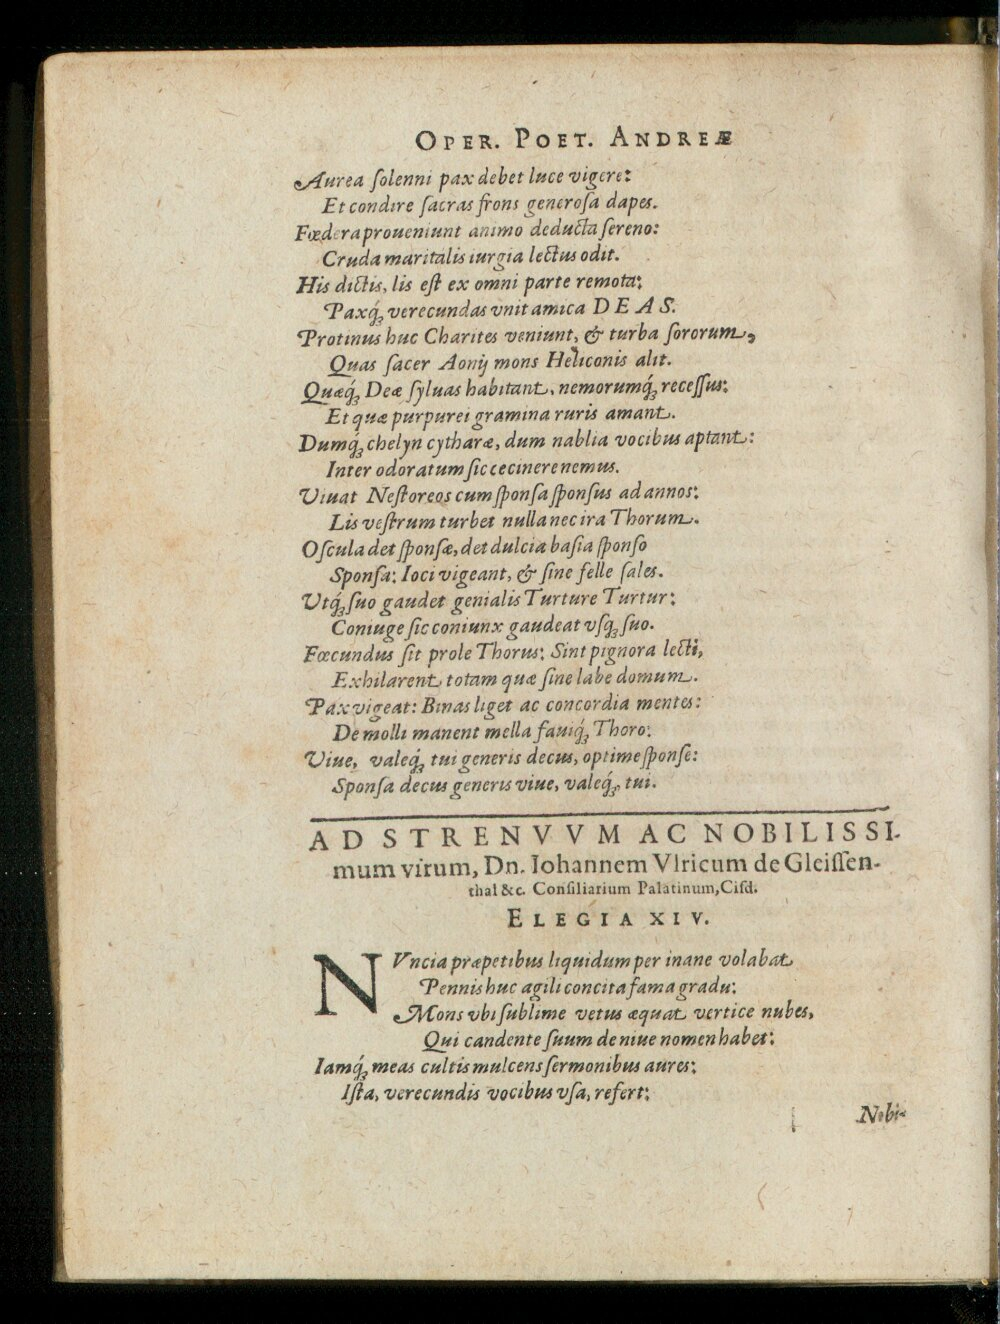 OPER. POET. ANDREÆ
Aurea ſolenni pax debet luce vigere:
Et condire ſacras frons generoſa dapes.
Fœdera proueniunt animo deducta ſereno:
Cruda maritalis iurgia lectus odit.
His dictis, lis eſt ex omni parte remota:
Paxq́ꝫ verecundas vnit amica DEAS.
Protinus huc Charites veniunt, & turba ſororum,
Quas ſacer Aonij mons Heliconis alit.
Quæq́ꝫ Deæ ſyluas habitant, nemorumq́ꝫ receſſus:
Et quæ purpurei gramina ruris amant.
Dumq́ꝫ chelyn cytharæ, dum nablia vocibus aptant:
Inter odoratum ſic cecinere nemus.
Viuat Neſtoreos cum ſponſa ſponſus ad annos:
Lis veſtrum turbet nulla nec ira Thorum.
Oſcula det ſponſæ, det dulcia baſia ſponſo
Sponſa: Ioci vigeant, & ſine felle ſales.
Vtq́ꝫ ſuo gaudet genialis Turture Turtur:
Coniuge ſic coniunx gaudeat vſqꝫ ſuo.
Fœcundus ſit prole Thorus: Sint pignora lecti,
Exhilarent totam quæ ſine labe domum.
Pax vigeat: Binas liget ac concordia mentes:
De molli manent mella fauiq́ꝫ Thoro:
Viue, valeq́ꝫ tui generis decus, optime ſponſe:
Sponſa decus generis viue, valeq́ꝫ tui.
AD STRENVVM AC NOBILISSI-
mum virum, Dn. Iohannem Vlricum de Gleiſſen-
thal &c. Conſiliarium Palatinum, Ciſd.
ELEGIA XIV.
NVncia præpetibus liquidum per inane volabat
Pennis huc agili concita fama gradu:
Mons vbi ſublime vetus æquat vertice nubes,
Qui candente ſuum de niue nomen habet:
Iamq́ꝫ meas cultis mulcens ſermonibus aures:
Iſta, verecundis vocibus vſa, refert:
Nobi-